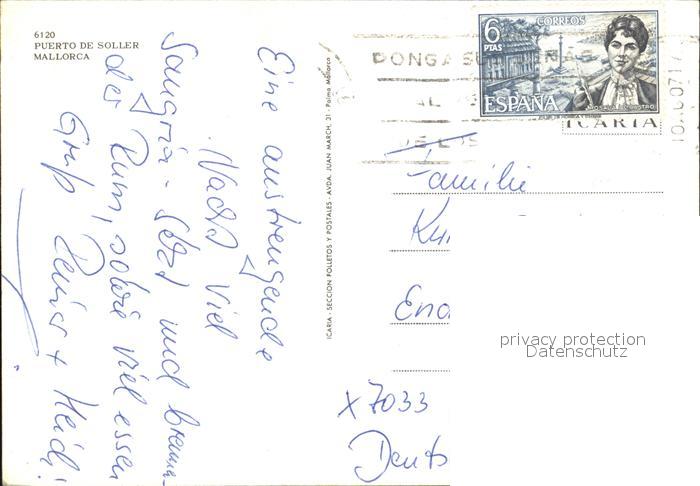 6120
PUERTO DE SOLLER
MALLORCA
Eine anstrengende
Nacht viel
Sangria - Sekt und brauner
der Rum, sowie viel essen
Gruß Denis + Heidi!
ICARIA - SECCION FOLLETOS Y POSTALES - AVDA. JUAN MARCH, 21 - Palma Mallorca
6 PTAS
CORREOS
ESPAÑA
PONGA
AL
ICARIA
Familie
Ku
End
x 7033
Deuts
privacy protection
Datenschutz